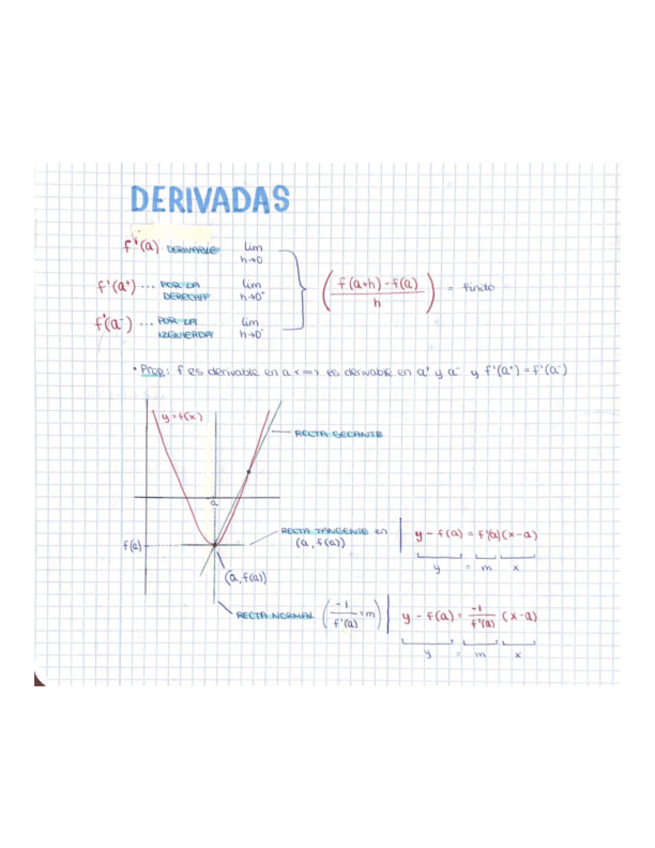 DERIVADAS
f'(a) DERIVABLE lim h→0
f'(a⁺) ... POR LA DERECHA lim h→0⁺
f'(a⁻) ... POR LA IZQUIERDA lim h→0⁻
( f(a+h) - f(a) / h ) = finito
• Prop: f es derivable en a <=> es derivable en a⁺ y a⁻ y f'(a⁺) = f'(a⁻)
y = f(x)
RECTA SECANTE
a
f(a)
RECTA TANGENTE en (a, f(a))
y - f(a) = f'(a)(x-a)
y = m x
(a, f(a))
RECTA NORMAL ( -1 / f'(a) = m )
y - f(a) = -1 / f'(a) (x-a)
y = m x